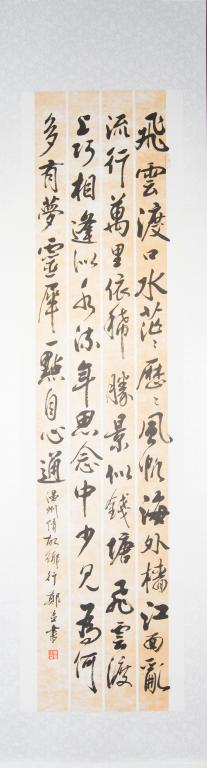 飛雲渡口水茫〻歷〻風帆海外檣江面亂
流行萬里依稀勝景似錢塘飛雲渡
上巧相逢似水流年思念中少見為何
多有夢靈犀一點自心通
温州情故鄉行鄭
書